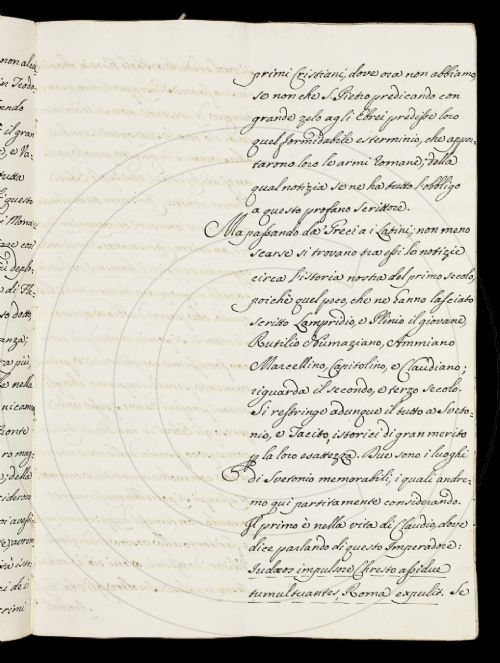 non al
in Teodo
endo
il gran
e, e Va-
tutta
questo
i Mona
iare così
deplo
e di Fl
to dotto
anza;
ra più
e nella
nicamen
fronte
ro mag
; della
primi Cristiani, dove ora non abbiamo,
se non che S. Pietro predicando con
grande zelo agli Ebrei predisse loro
quel formidabile esterminio, che appor-
tarono loro le armi romane, della
qual notizia se ne ha tutto l'obbligo
a questo profano scrittore.
Ma passando da' Greci a i Latini; non meno
scarse si trovano tra essi le notizie
circa l'istoria nostra del primo secolo,
poichè quel poco, che ne hanno lasciato
scritto Lampridio, e Plinio il giovane,
Rutilio Numaziano, Ammiano
Marcellino, Capitolino, e Claudiano;
riguarda il secondo, e terzo secolo.
Si restringe adunque il tutto a Sveto-
nio, e Tacito, istorici di gran merito
p la loro esattezza. Due sono i luoghi
di Svetonio memorabili, i quali andre-
mo qui partitamente considerando.
Il primo è nella vita di Claudio, dove
dice parlando di questo Imperadore:
Iudæos impulsore Chresto assidue
tumultuantes, Roma expulit. Se